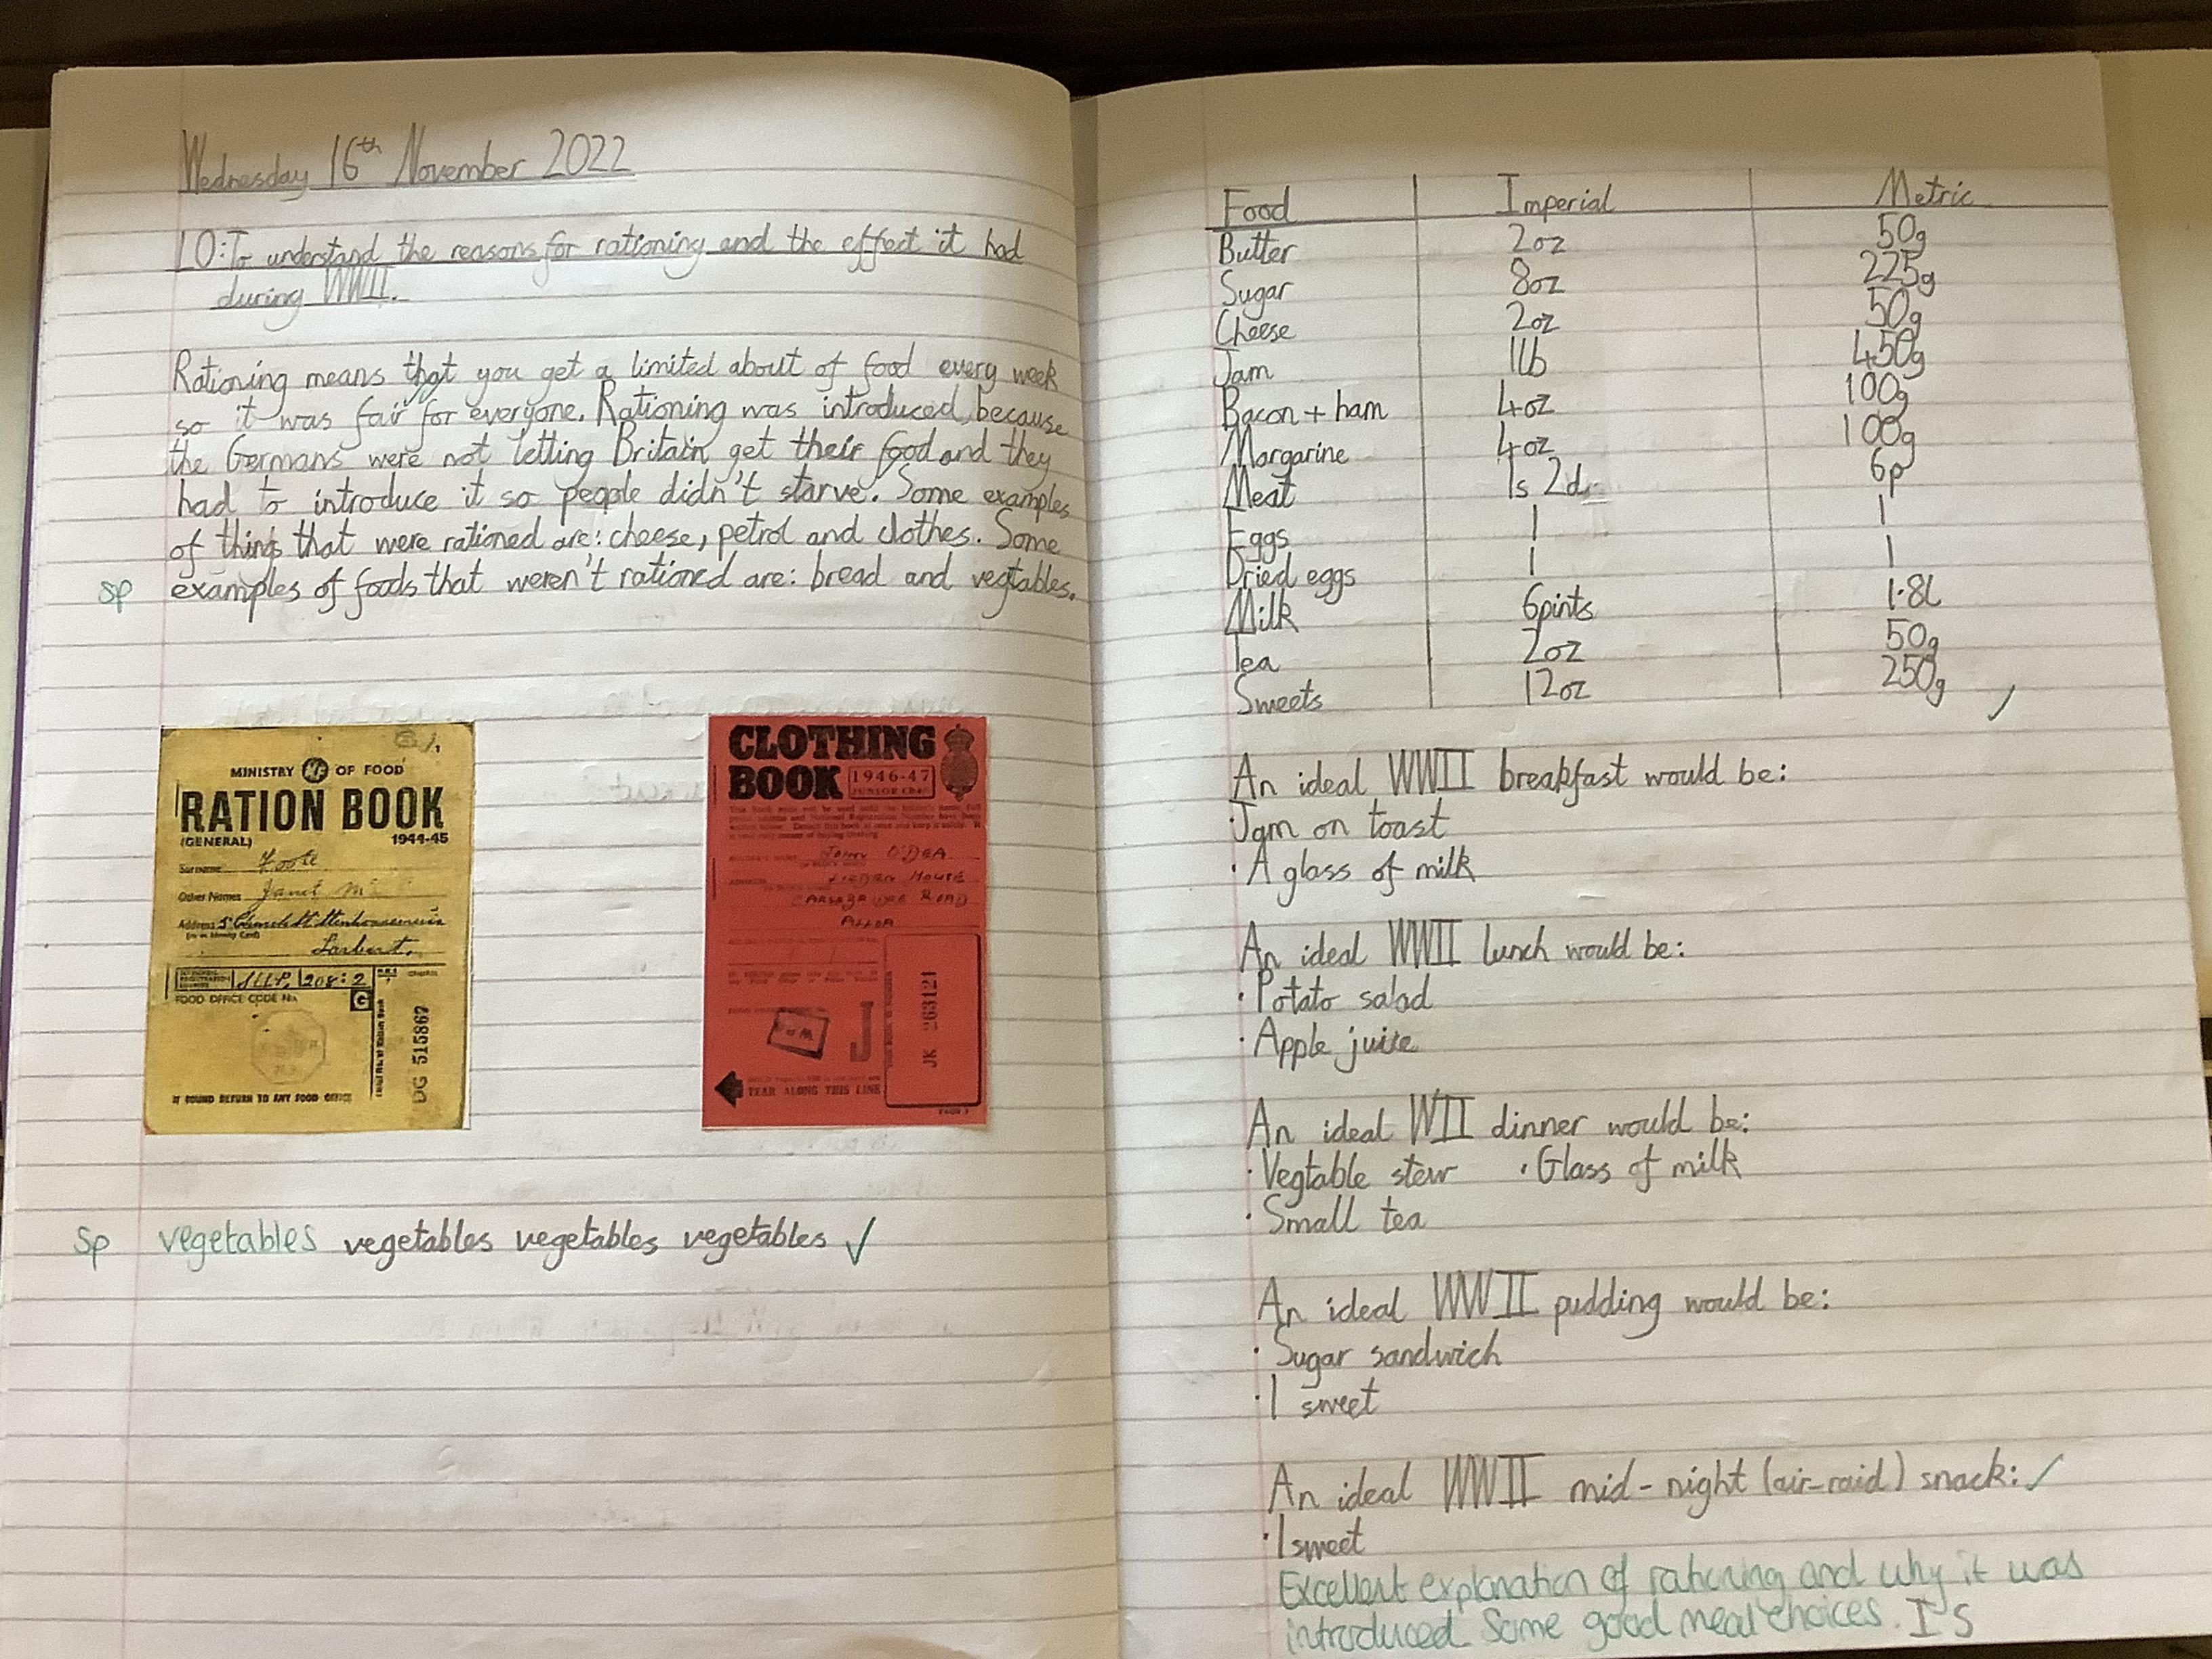 Wednesday 16th November 2022
LO: To understand the reasons for rationing and the effect it had
during WWII.
Rationing means that you get a limited about of food every week
so it was fair for everyone. Rationing was introduced, because
the Germans were not letting Britain get their food and they
had to introduce it so people didn't starve. Some examples
of things that were rationed are: cheese, petrol and clothes. Some
sp examples of foods that weren't rationed are: bread and vegtables.
MINISTRY MF OF FOOD
RATION BOOK
(GENERAL) 1944-45
Surname
Other Names Janet
Address 5
Larbert.
208:2
FOOD OFFICE CODE No. G
DG 515867
IF FOUND RETURN TO ANY FOOD OFFICE
CLOTHING
BOOK 1946-47
JUNIOR
JOHN O'DEA
HOUSE
ROAD
ALLOA
J
JK 263121
TEAR ALONG THIS LINE
PAGE
sp vegetables vegetables vegetables vegetables ✓
Food Imperial Metric
Butter 2oz 50g
Sugar 8oz 225g
Cheese 2oz 50g
Jam 1lb 450g
Bacon + ham 4oz 100g
Margarine 4oz 100g
Meat 1s 2d. 6p
Eggs 1 1
Dried eggs 1 1
Milk 6pints 1.8L
Tea 2oz 50g
Sweets 12oz 250g
An ideal WWII breakfast would be:
·Jam on toast
· A glass of milk
An ideal WWII lunch would be:
· Potato salad
· Apple juice
An ideal WII dinner would be:
· Vegtable stew · Glass of milk
· Small tea
An ideal WWII pudding would be:
· Sugar sandwich
· 1 sweet
An ideal WWII mid-night (air-raid) snack: ✓
· 1 sweet
Excellent explanation of rationing and why it was
introduced. Some good meal choices. IS